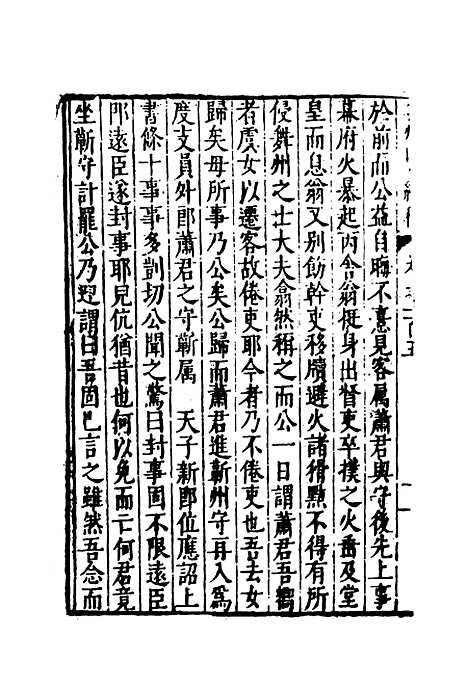 於前而公益自晦不意見客属蕭君與守後先上事
幕府火暴起丙舍翁挺身出督吏卒撲之火垂及堂
皇而息翁又别飭幹吏移牘避火諸猾黠不得有所
侵舞州之士大夫翕然稱之而公一日謂蕭君吾嚮
者虞女以遷客故倦吏耶今者乃不倦吏也吾去女
歸矣毋所事乃公矣公歸而蕭君進蘄州守再入爲
度支員外郎蕭君之守蘄属 天子新郎位應詔上
書條十事事多剴切公聞之驚曰封事固不限遠臣
郎遠臣遂封事耶兒伉猶昔也何以免而亡何君竟
坐蘄守計罷公乃迎謂曰吾固已言之雖然吾念而